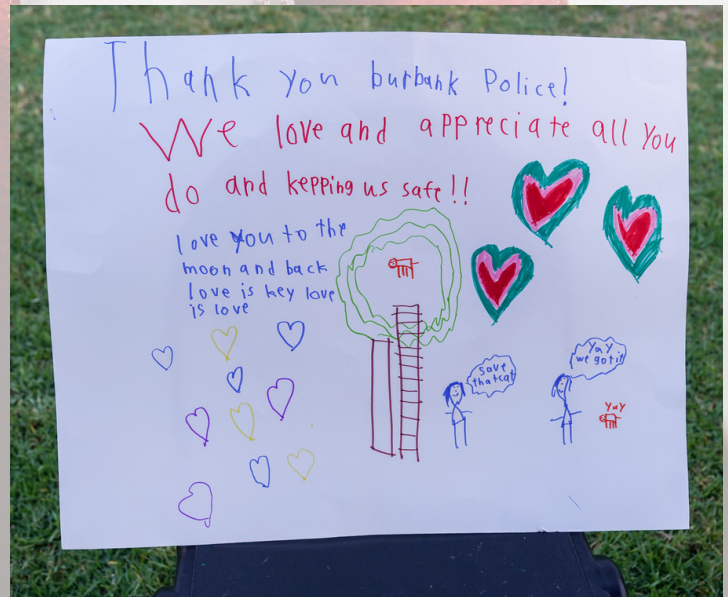 Thank you burbank Police!
We love and appreciate all you
do and kepping us safe!!
love you to the
moon and back
love is key love
is love
save
that cat
Yay
we got it
Yay